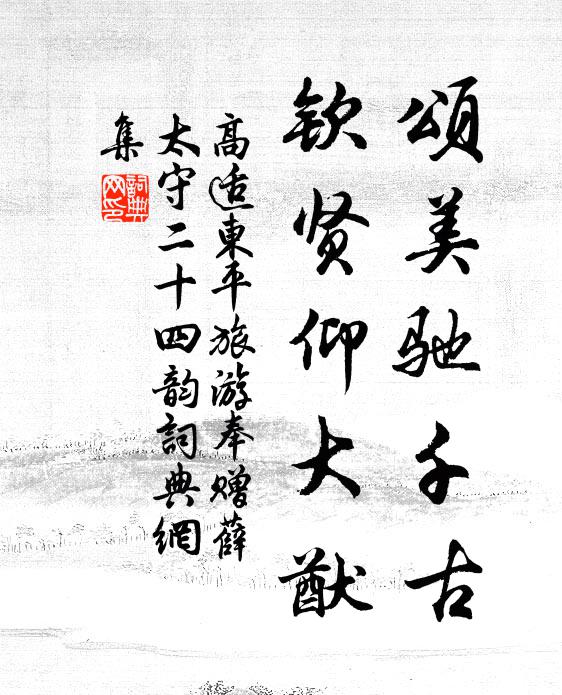 颂美驰千古
钦贤仰大猷
高适東平旅游奉赠薛
太守二十四韵詞典網
集
詞典
网印